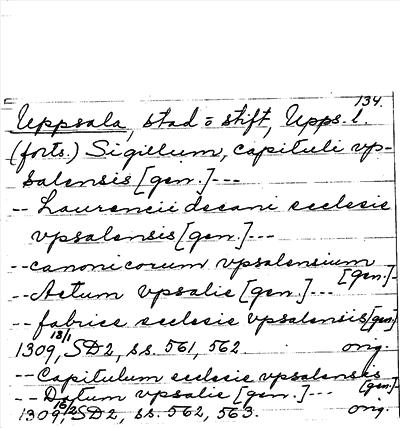 134.
Uppsala, stad o stift, Upps. l.
(forts.) Sigillum, capituli vp-
salensis [gen.] ---
-- Laurencii decani ecclesie
vpsalensis [gen.] ---
-- canonicorum vpsalensium
[gen.] -
-- Actum vpsalie [gen.] ---
-- fabrice ecclesie vpsalensis [gen.]
1309 18/1, SD2, ss. 561, 562. orig.
-- Capitulum ecclesie vpsalensis
[gen.] -
-- Datum vpsalie [gen.] ---
1309, SD2, ss. 562, 563. orig.